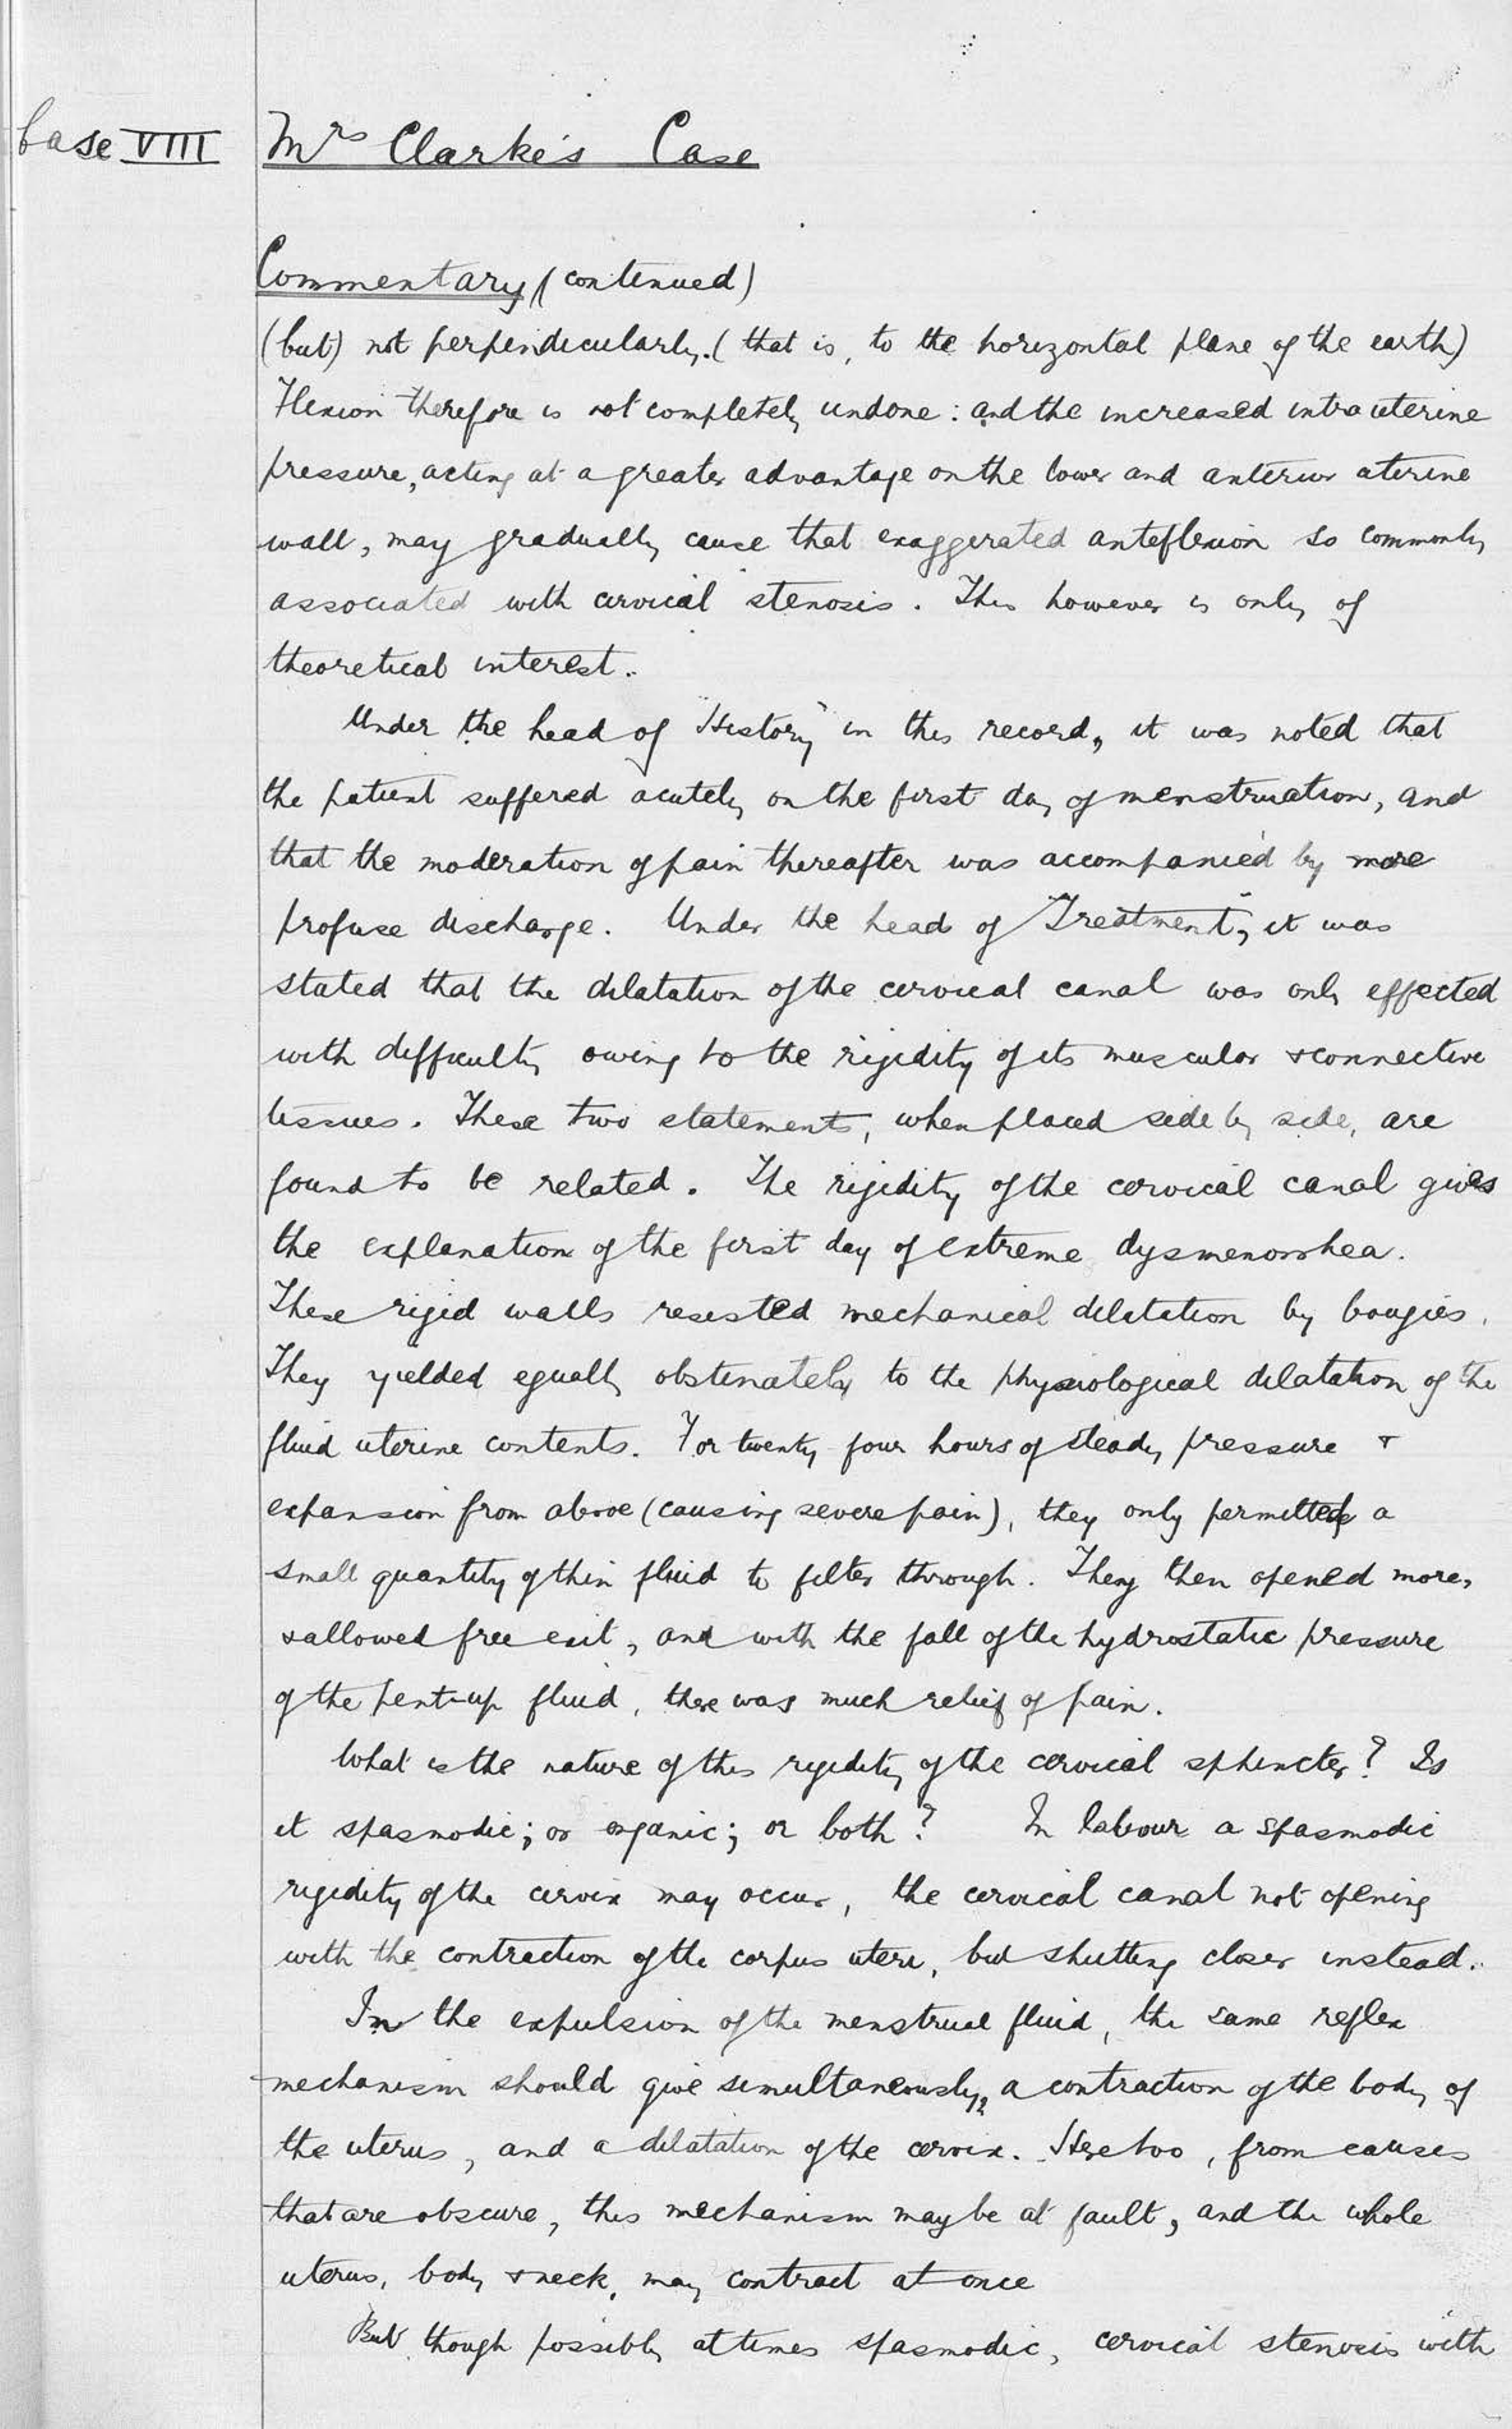 Case VIII
Mrs Clarke's Case
Commentary (continued)
(but) not perpendicularly. (that is, to the horizontal plane of the earth)
Flexion therefore is not completely undone: and the increased intrauterine
pressure, acting at a greater advantage on the lower and anterior uterine
wall, may gradually cause that exaggerated anteflexion so commonly
associated with cervical stenosis. This however is only of
theoretical interest.
Under the head of "History" in this record, it was noted that
the patient suffered acutely on the first day of menstruation, and
that the moderation of pain thereafter was accompanied by more
profuse discharge. Under the head of "Treatment", it was
stated that the dilatation of the cervical canal was only effected
with difficulty owing to the rigidity of its muscular & connective
tissues. These two statements, when placed side by side, are
found to be related. The rigidity of the cervical canal gives
the explanation of the first day of extreme dysmenorrhea.
These rigid walls resisted mechanical dilatation by bougies.
They yielded equally obstinately to the physiological dilatation of the
fluid uterine contents. For twenty four hours of steady pressure &
expansion from above (causing severe pain), they only permitted a
small quantity of thin fluid to filter through. They then opened more,
& allowed free exit, and with the fall of the hydrostatic pressure
of the pent-up fluid, there was much relief of pain.
What is the nature of this rigidity of the cervical sphincter? Is
it spasmodic; or organic; or both? In labour a spasmodic
rigidity of the cervix may occur, the cervical canal not opening
with the contraction of the corpus uteri, but shutting closer instead.
In the expulsion of the menstrual fluid, the same reflex
mechanism should give simultaneously, a contraction of the body of
the uterus, and a dilatation of the cervix. Here too, from causes
that are obscure, this mechanism may be at fault, and the whole
uterus, body & neck, may contract at once
But though possibly at times spasmodic, cervical stenosis with